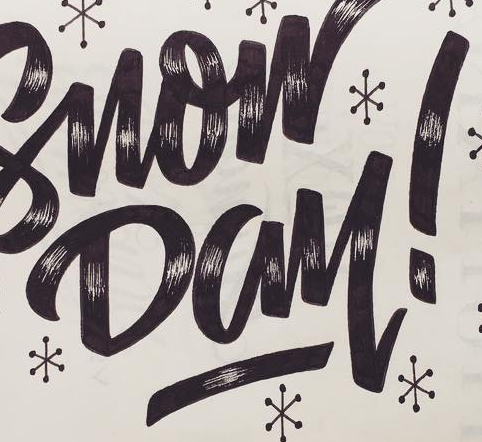 Snow
Day!